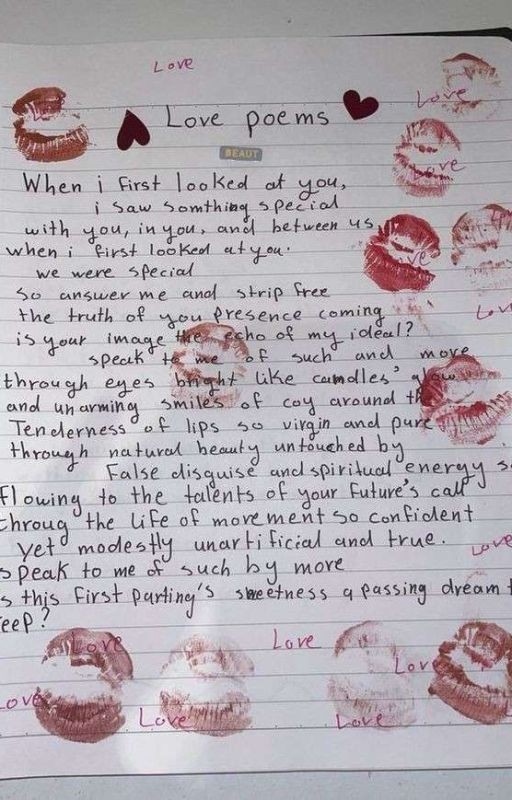 Love
Love
Love
Love poems
BEAUT
Love
When i first looked at you,
i saw somthing special
with you, in you, and between us,
when i first looked at you.
we were special
So answer me and strip free
the truth of you presence coming
is your image the echo of my ideal?
speak to me of such and more
through eyes bright like candles' glow
and unarming smiles of coy around th
Tenderness of lips so virgin and pure
through natural beauty untouched by
False disguise and spiritual energy so
flowing to the talents of your future's call
throug the life of movement so confident
yet modestly unartificial and true.
Love
speak to me of such by more
s this first parting's sweetness a passing dream t
eep?
Love
Love
Love
Love
Love
Love